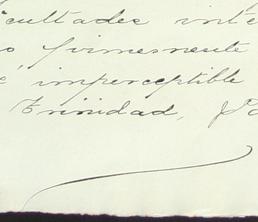 icultades inte
o firmesneute
e imperceptible
Trinidad,